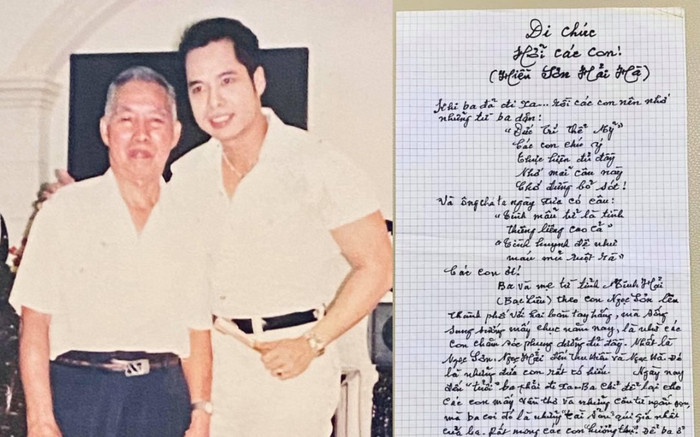 Di chúc
Hỡi các con!
(Hiền Sơn Hải Hà)
Khi ba đã đi xa... rồi các con nên nhớ
những lời ba dặn:
"Đức Trí Thể Mỹ"
Các con chú ý
Thực hiện đủ đầy
Nhớ mãi câu này
Chớ đừng bỏ sót!
Và ông cha ta ngày xưa có câu:
"Tình mẫu tử là tình
thiêng liêng cao cả"
"Tình huynh đệ như
máu mủ ruột rà"
Các con ơi!
Ba và mẹ từ tỉnh Minh Hải
(Bạc Liêu) theo con Ngọc Sơn lên
thành phố với hai bàn tay trắng, mà sống
sung sướng mấy chục năm nay, là nhờ các
con chăm sóc phụng dưỡng đủ đầy. Nhất là
Ngọc Sơn, Ngọc Hải và Ngọc Hà. Đó
là những đứa con rất có hiếu. Ngày nay
đến "tuổi" ba phải đi xa. Ba chỉ để lại cho
các con mấy vần thơ và những câu từ ngắn gọn,
mà ba coi đó là những tài sản quí giá nhất
của ba. Rất mong các con hưởng thụ. Để ba ở